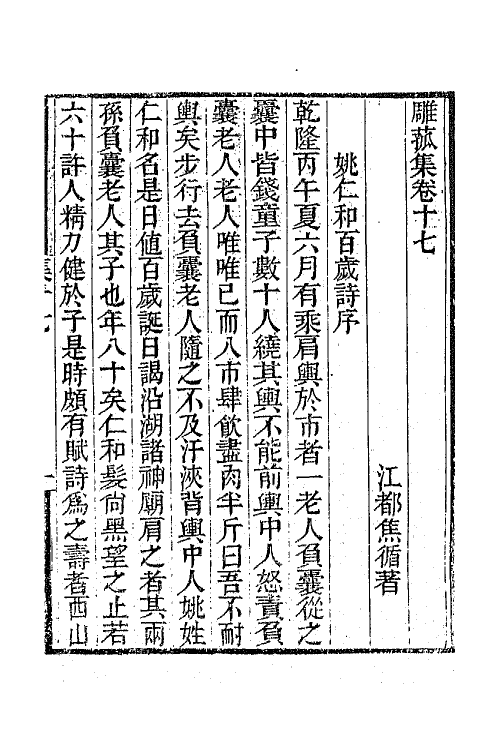 雕菰集卷十七
江都焦循著
姚仁和百歲詩序
乾隆丙午夏六月有乘肩輿於市者一老人負囊從之
囊中皆錢童子數十人繞其輿不能前輿中人怒責負
囊老人老人唯唯已而入市肆飲盡肉半斤曰吾不耐
輿矣步行去負囊老人隨之不及汗浹背輿中人姚姓
仁和名是日値百歲誕日謁沿湖諸神廟肩之者其兩
孫負囊老人其子也年八十矣仁和髮尙黑望之止若
六十許人精力健於子是時頗有賦詩爲之壽者西山